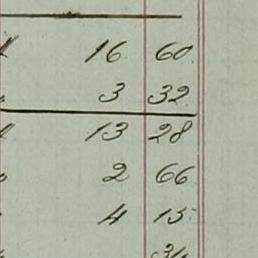 16 60
3 32
13 28
2 66
4 15
34